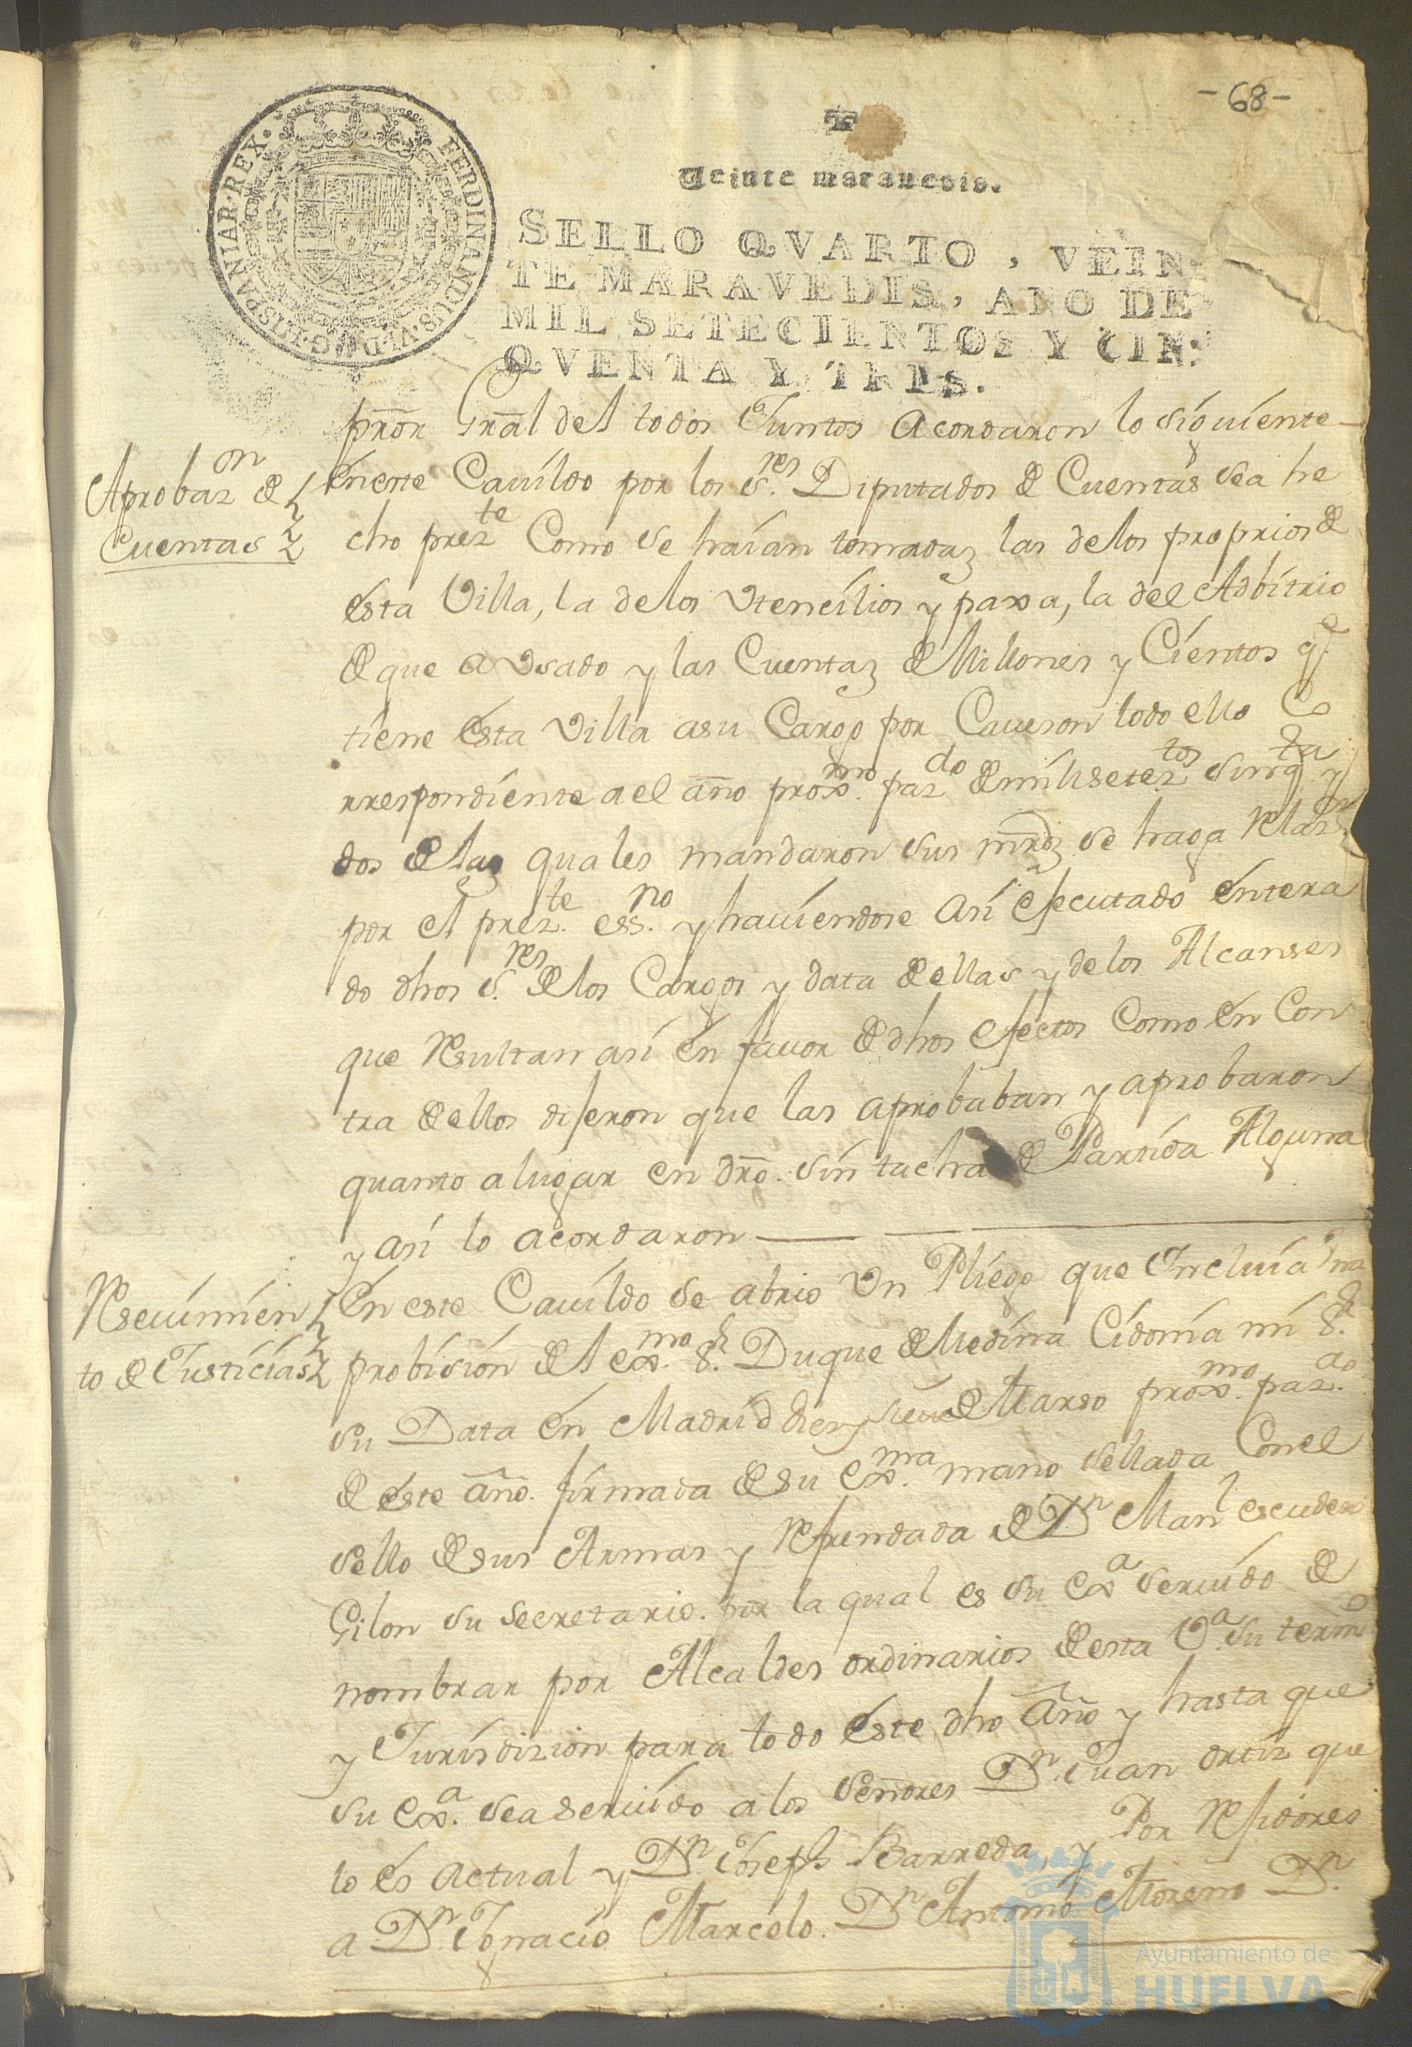 -68-
Veinte maravedis.
FERDINANDUS·VI·D·G·HISPANIAR·REX·
SELLO QVARTO, VEIN-
TE MARAVEDIS, AÑO DE
MIL SETECIENTOS Y CIN-
QVENTA Y TRES.
prõr Grãl del todos Juntos acordaron lo siguiente
Aprobazon de
Cuentas
En este Cavildo por los s.res Diputados de Cuentas sea he
cho prez.te Como se havian tomadaz las delos proprios de
esta Villa, la de los Utencilios y paxa, la del Adbitrio
de que a Usado y las Cuentaz de Millones y Cientos q.e
tiene esta Villa asu Cargo por Caveson todo ello Co
rrespondiente a el año prox.mo paz.do de mill setez.tos sinq.ta y
dos de laz quales mandaron sus mrdz se haga Relaz.on
por el prez.te ess.no y haviendose asi ejecutado entera
do dhos s.res de los Cargos y data de ellas y de los Alcanses
que Resultan asi en favor de dhos efectos Como en Con
tra de ellos dijeron que las aprobaban y aprobaron
quanto a lugar en drõ. sin tacha de Partida Alguna
y asi lo acordaron
Resevimien
to de Justicias
En este Cavildo se abrio Un Pliego que Incluia Una
probision del ex.mo s.r Duque de Medina Cidonia mi s.r
su Data en Madrid dies y siete de Marso prox.mo paz.do
de este año. firmada de su ex.ma mano sellada Con el
sello de sus Armas y Refrendada de Dn Manl escudero
Gilon su secretario. por la qual es su ex.a servido de
nombrar por Alcaldes ordinarios de esta V.a su termo
y Jurisdizion para todo este dho año y hasta que
su ex.a sea servido a los señores Dn Juan ortiz que
lo es actual y Dn Joseph Barreda, y Por Rejidores
a Dn Ignacio Marcelo. Dn Antonio Moreno Dn
Ayuntamiento de
HUELVA